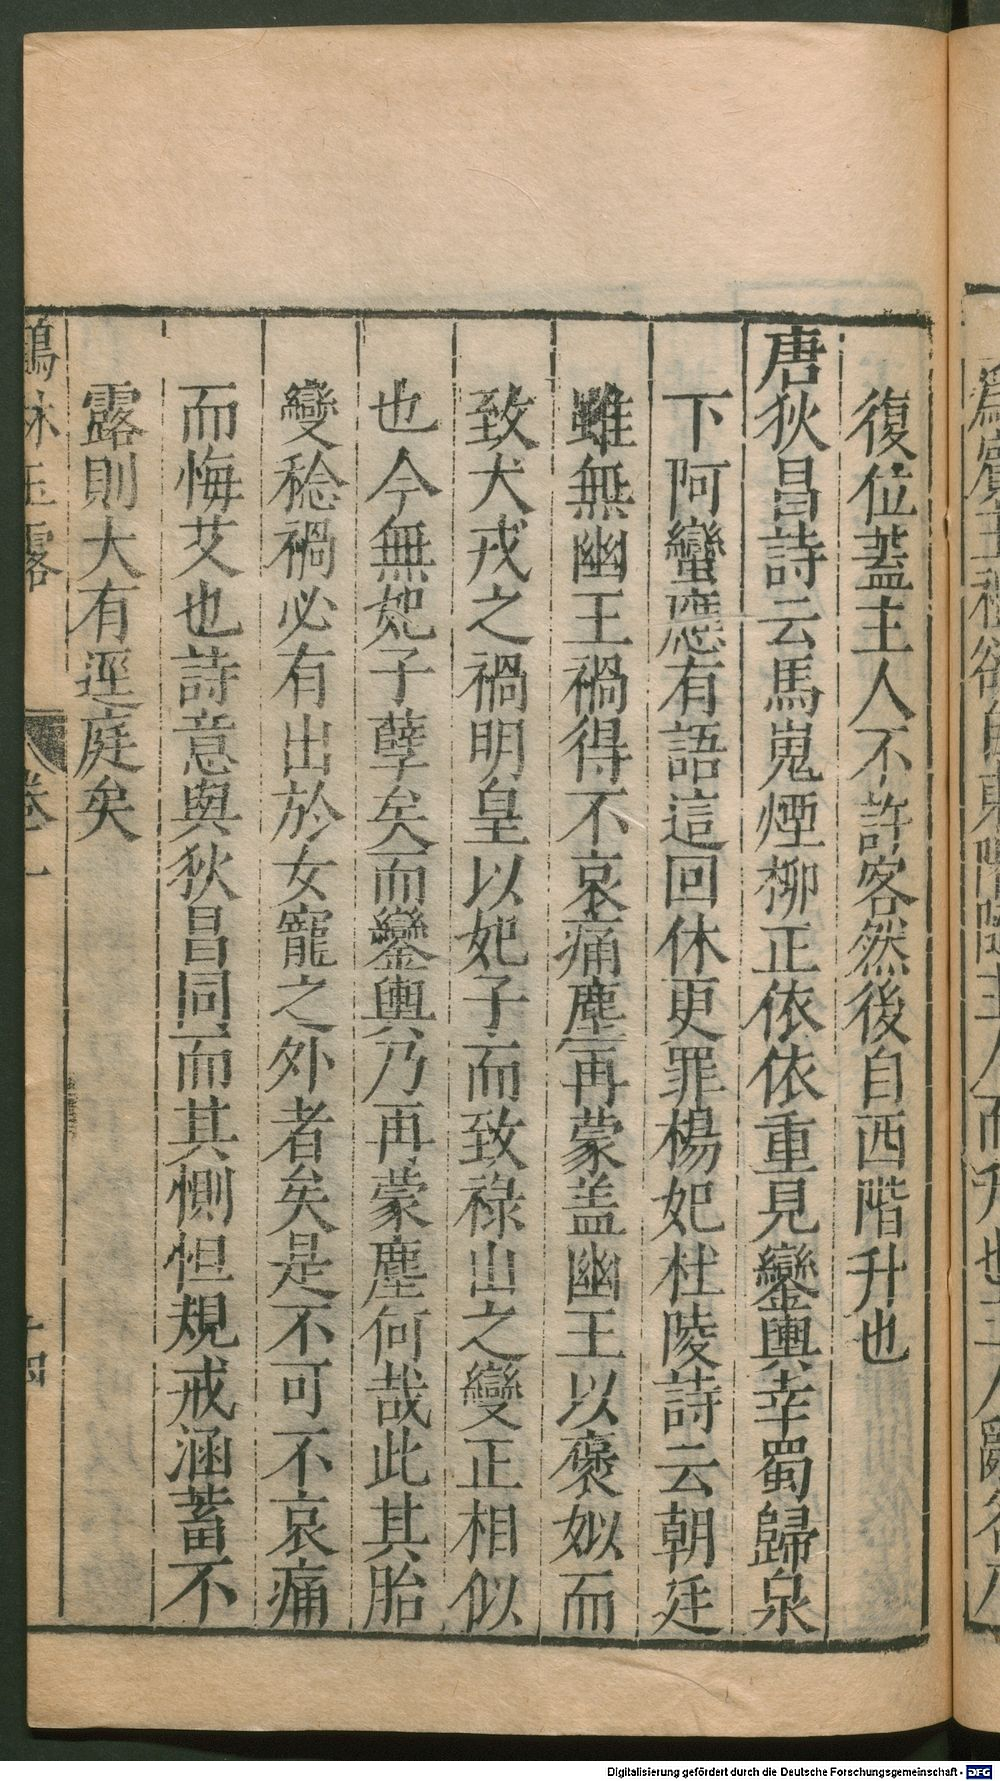 復位蓋主人不許客然後自西階升也
唐狄昌詩云馬嵬煙柳正依依重見鑾輿幸蜀歸泉
下阿蠻應有語這回休更罪楊妃杜陵詩云朝廷
雖無幽王禍得不哀痛塵再蒙盖幽王以褒姒而
致犬戎之禍明皇以妃子而致祿山之變正相似
也今無妃子孽矣而鑾輿乃再蒙塵何哉此其胎
變稔禍必有出於女寵之外者矣是不可不哀痛
而悔艾也詩意與狄昌同而其惻怛規戒涵蓄不
露則大有逕庭矣
鶴林玉露
卷一
Digitalisierung gefördert durch die Deutsche Forschungsgemeinschaft - DFG